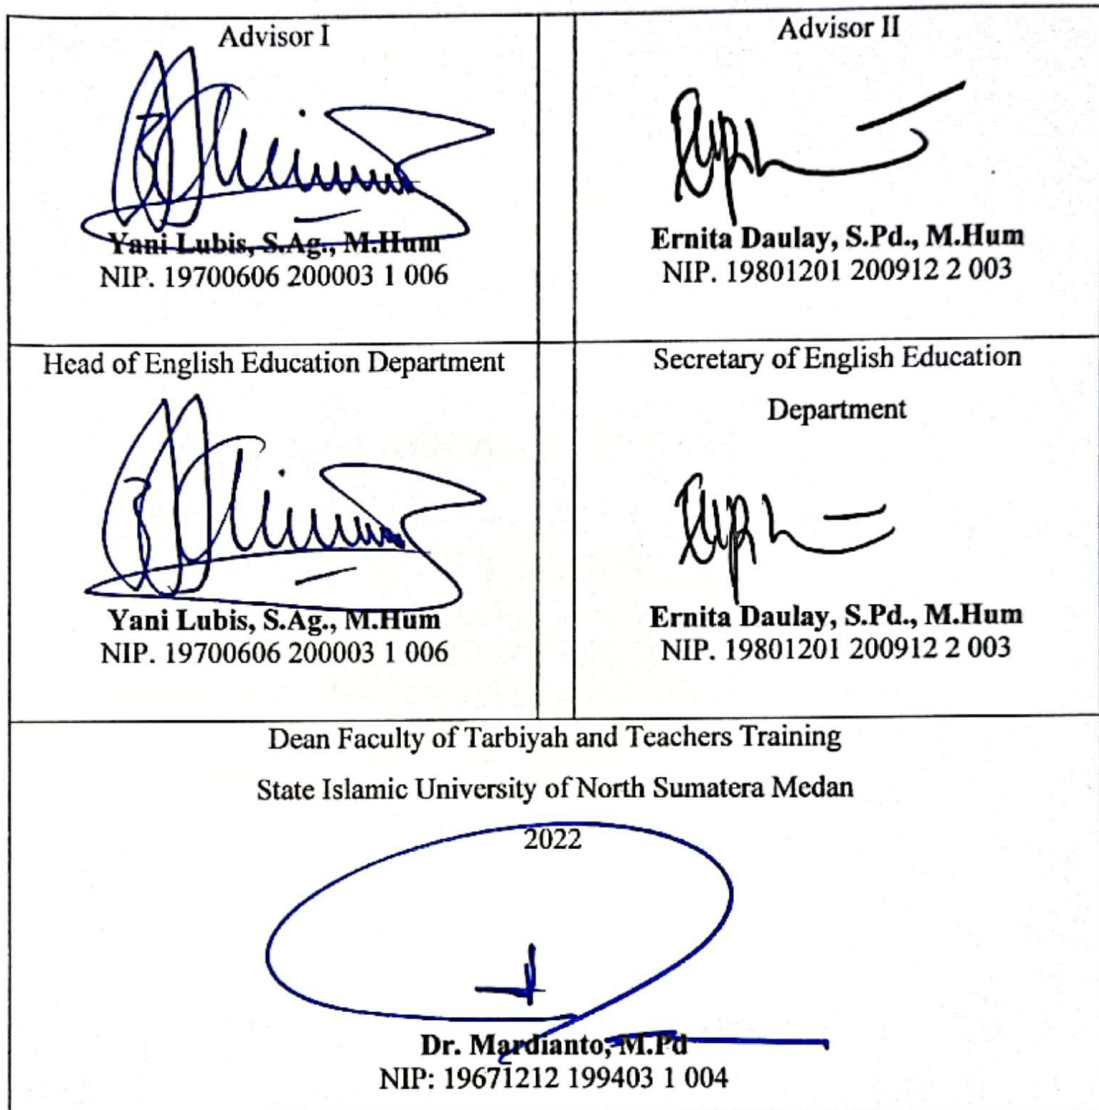 Advisor I
Yani Lubis, S.Ag., M.Hum
NIP. 19700606 200003 1 006
Advisor II
Ernita Daulay, S.Pd., M.Hum
NIP. 19801201 200912 2 003
Head of English Education Department
Yani Lubis, S.Ag., M.Hum
NIP. 19700606 200003 1 006
Secretary of English Education
Department
Ernita Daulay, S.Pd., M.Hum
NIP. 19801201 200912 2 003
Dean Faculty of Tarbiyah and Teachers Training
State Islamic University of North Sumatera Medan
2022
Dr. Mardianto, M.Pd
NIP: 19671212 199403 1 004